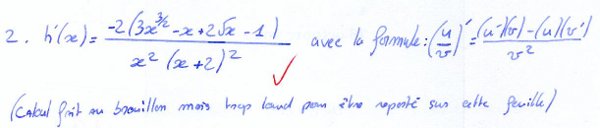 2. h'(x) = -2(3x^{3/2} - x + 2√x - 1) / x² (x+2)² avec la formule : (u/v)' = (u')(v) - (u)(v') / v²
(Calcul fait au brouillon mais trop lourd pour être reporté sur cette feuille)